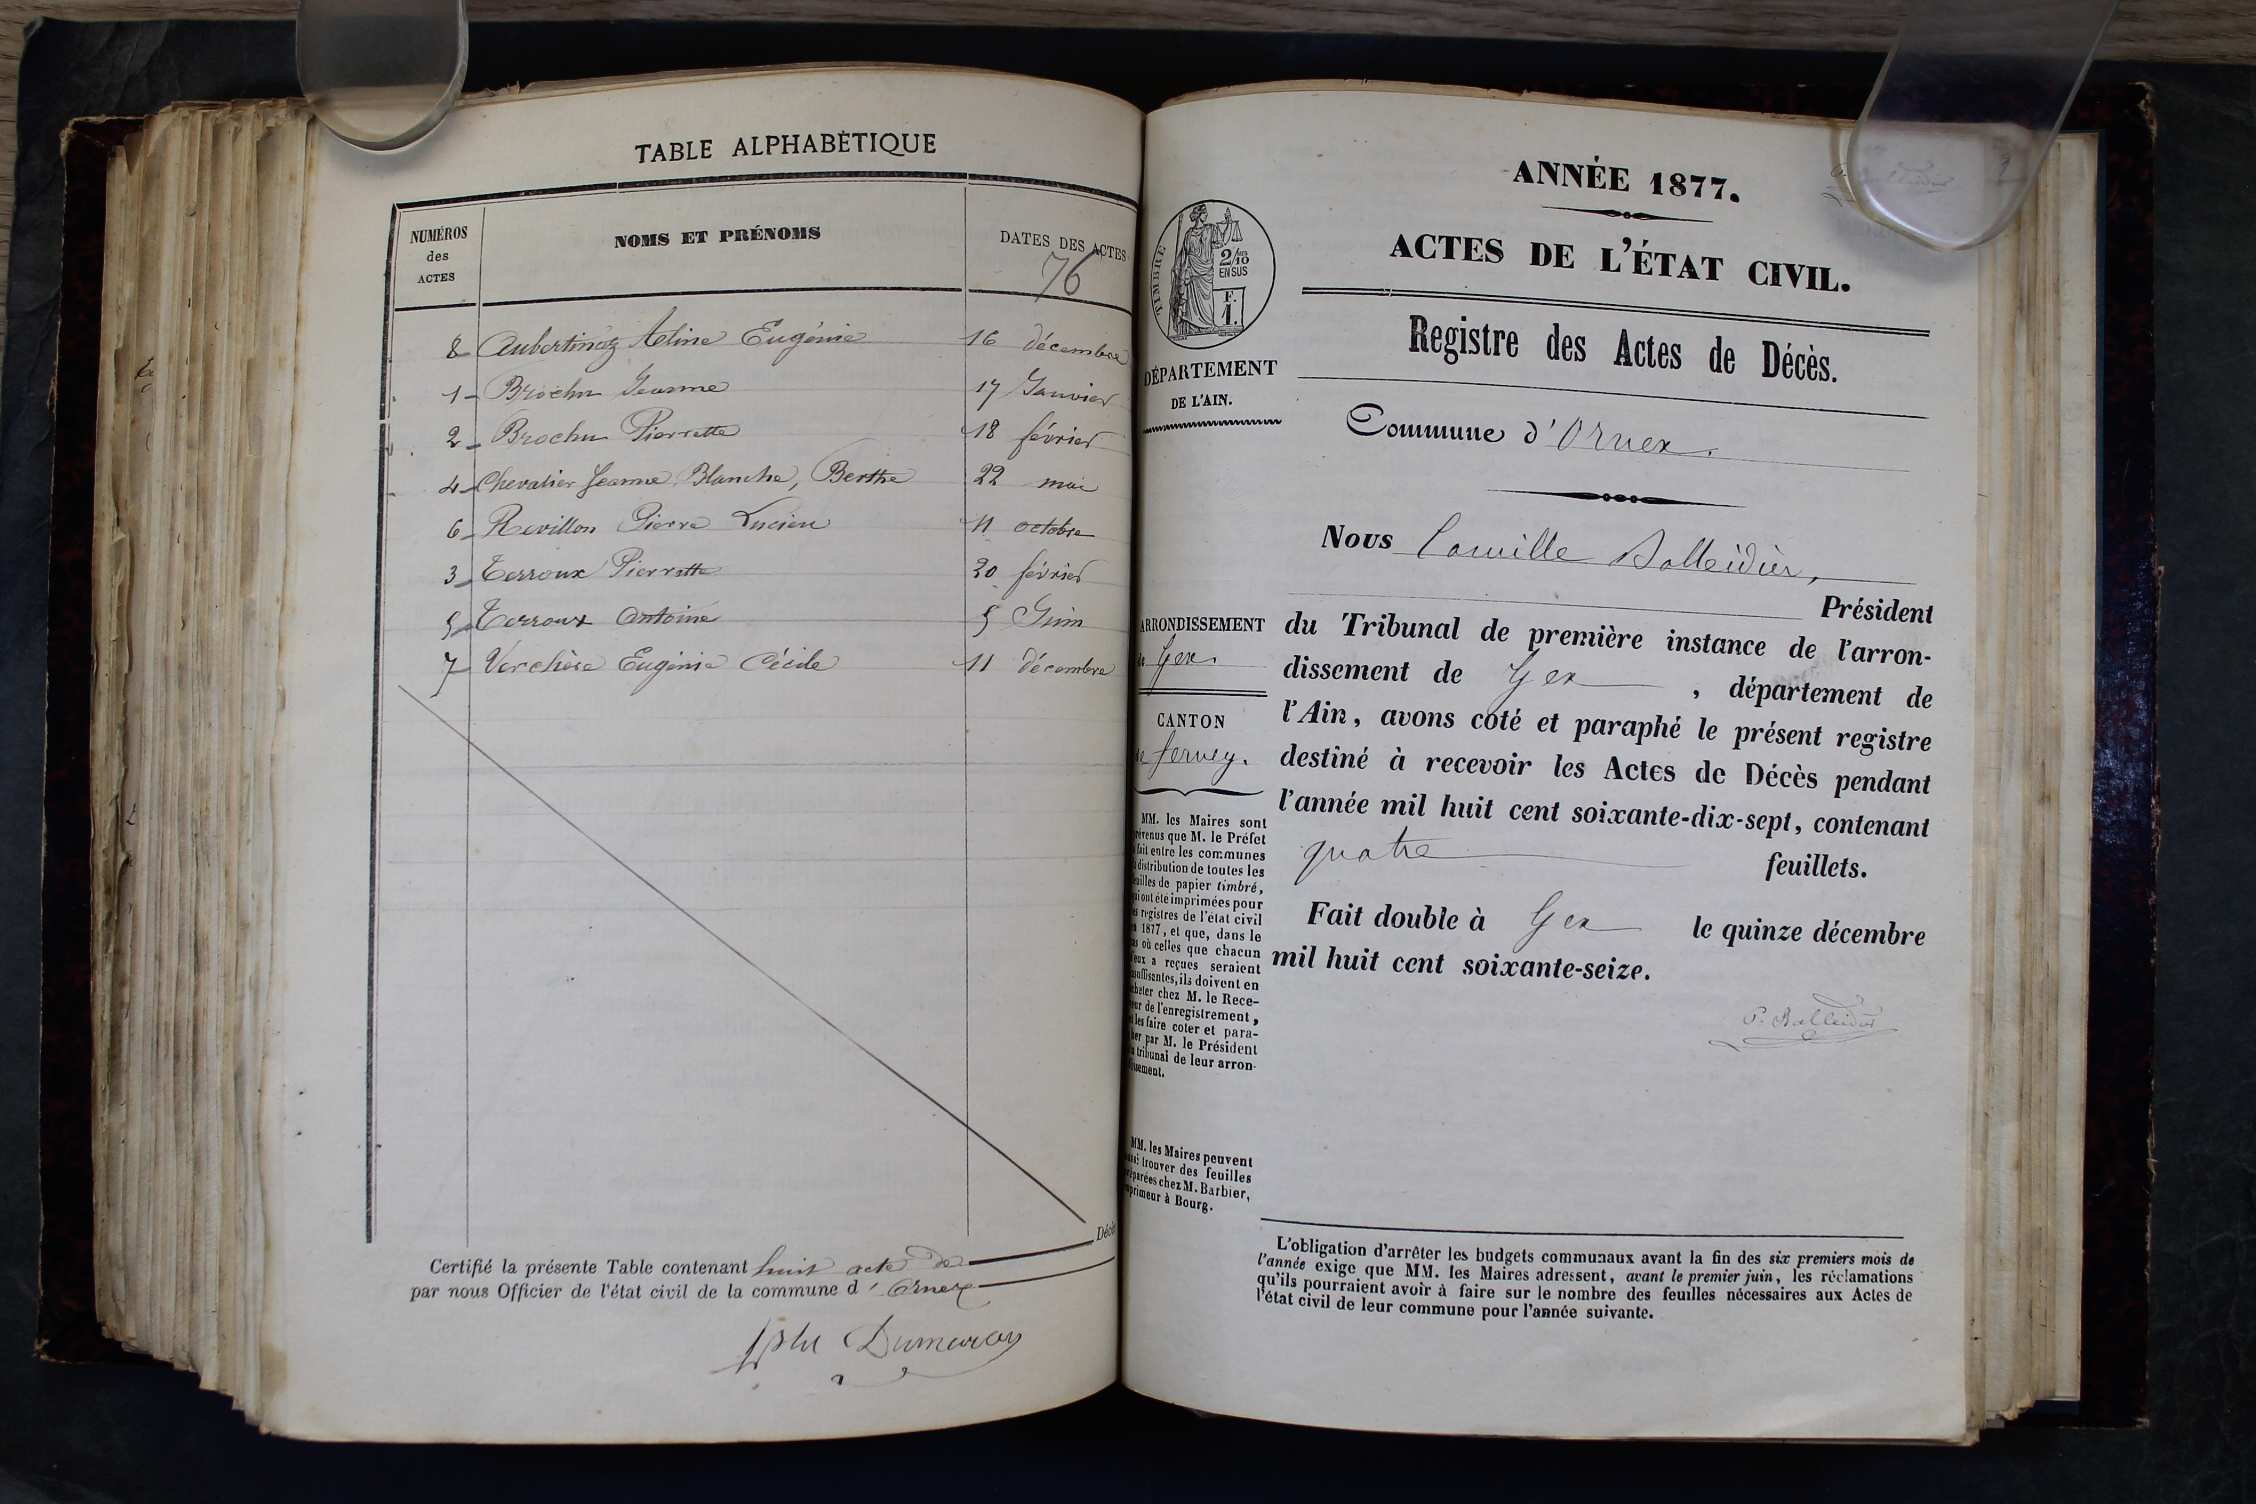 TABLE ALPHABÈTIQUE
NUMÉROS
des
ACTES
NOMS ET PRÉNOMS
DATES DES ACTES
76
8 Aubertinaz Aline Eugénie 16 décembre
1 Brochu Jeanne 17 Janvier
2 Brochu Pierrette 18 février
4 Chevalier Jeanne Blanche, Berthe 22 mai
6 Revillon Pierre Lucien 11 octobre
3 Terroux Pierrette 20 février
5 Terroux Antoine 5 Juin
7 Verchère Eugénie Cécile 11 décembre
Certifié la présente Table contenant huit acte de Décès
par nous Officier de l'état civil de la commune d'Ornex
ANNÉE 1877.
ACTES DE L'ÉTAT CIVIL.
TIMBRE
2/10
EN SUS
F.
1.
DÉPARTEMENT
DE L'AIN.
Registre des Actes de Décès.
Commune d'Ornex.
Nous Camille Balleidier,
Président
ARRONDISSEMENT
de Gex.
CANTON
de Ferney.
du Tribunal de première instance de l'arron-
dissement de Gex, département de
l'Ain, avons coté et paraphé le présent registre
destiné à recevoir les Actes de Décès pendant
l'année mil huit cent soixante-dix-sept, contenant
quatre feuillets.
Fait double à Gex le quinze décembre
mil huit cent soixante-seize.
C. Balleidier
MM. les Maires sont
prévenus que M. le Préfet
a fait entre les communes
la distribution de toutes les
feuilles de papier timbré,
qui ont été imprimées pour
les registres de l'état civil
en 1877, et que, dans le
cas où celles que chacun
d'eux a reçues seraient
insuffisantes, ils doivent en
acheter chez M. le Rece-
veur de l'enregistrement,
et les faire coter et para-
pher par M. le Président
du tribunal de leur arron-
dissement.
MM. les Maires peuvent
aussi trouver des feuilles
préparées chez M. Barbier,
imprimeur à Bourg.
L'obligation d'arrêter les budgets communaux avant la fin des six premiers mois de
l'année exige que MM. les Maires adressent, avant le premier juin, les réclamations
qu'ils pourraient avoir à faire sur le nombre des feuilles nécessaires aux Actes de
l'état civil de leur commune pour l'année suivante.